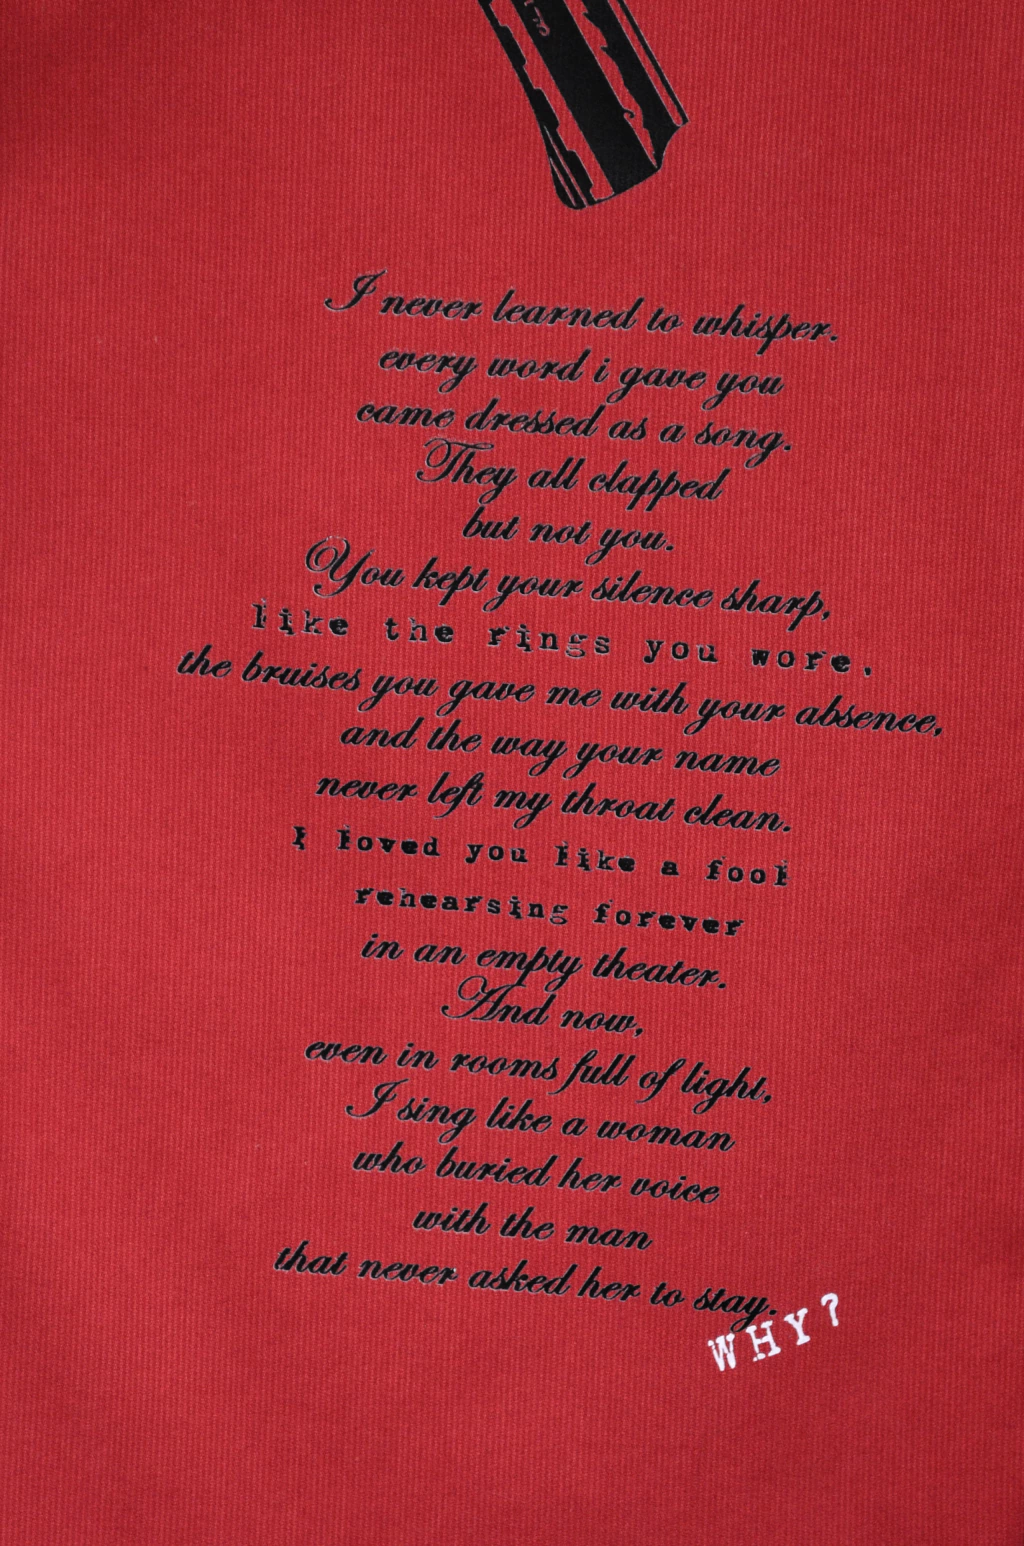 I never learned to whisper.
every word i gave you
came dressed as a song.
They all clapped
but not you.
You kept your silence sharp,
like the rings you wore,
the bruises you gave me with your absence,
and the way your name
never left my throat clean.
I loved you like a fool
rehearsing forever
in an empty theater.
And now,
even in rooms full of light,
I sing like a woman
who buried her voice
with the man
that never asked her to stay.
WHY?